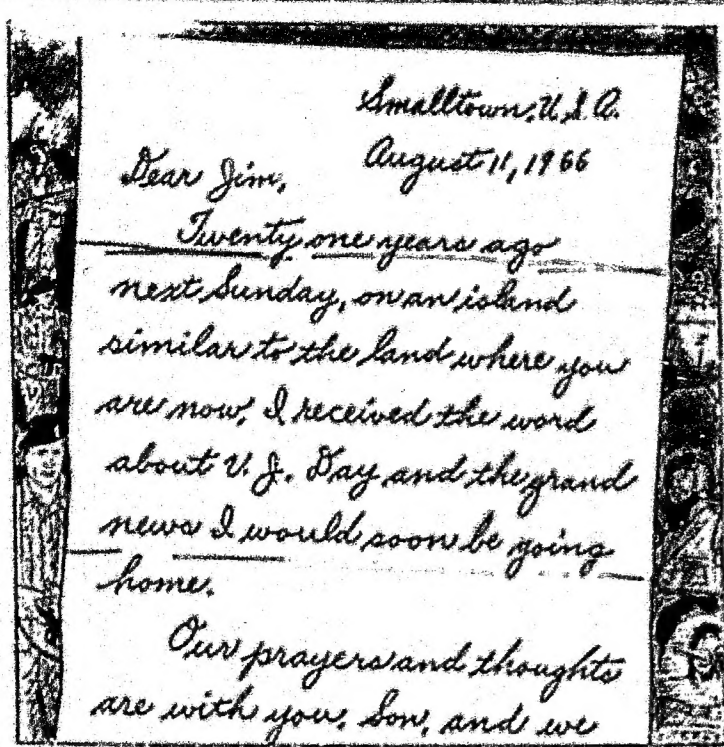 Smalltown, U.S.A.
August 11, 1966
Dear Jim,
Twenty one years ago
next Sunday, on an island
similar to the land where you
are now, I received the word
about V.J. Day and the grand
news I would soon be going
home.
Our prayers and thoughts
are with you, Son, and we